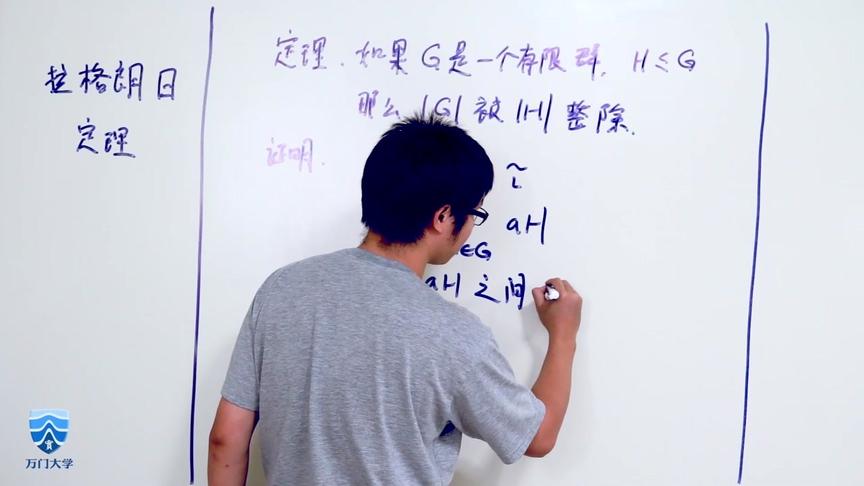 拉格朗日
定理
定理. 如果 G 是一个有限群, H ≤ G
那么 |G| 被 |H| 整除.
证明.
~
L
aH
∈G
aH 之间
万门大学